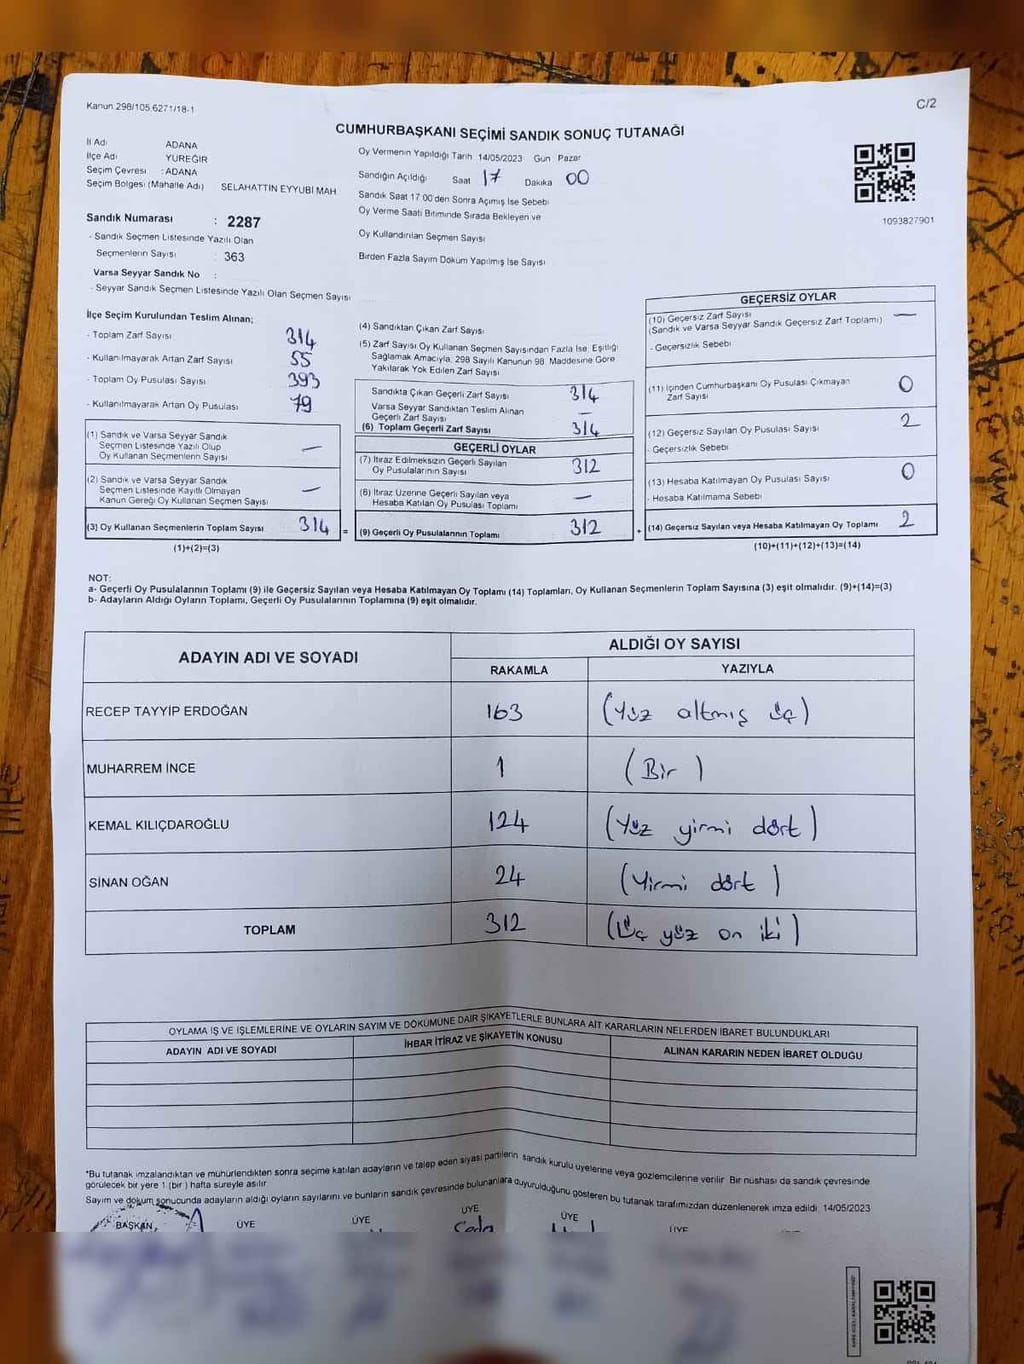 Kanun 298/105,6271/18-1
C/2
CUMHURBAŞKANI SEÇİMİ SANDIK SONUÇ TUTANAĞI
İl Adı ADANA
İlçe Adı YÜREĞİR
Seçim Çevresi : ADANA
Seçim Bölgesi (Mahalle Adı) SELAHATTİN EYYUBİ MAH
Sandık Numarası : 2287
- Sandık Seçmen Listesinde Yazılı Olan
Seçmenlerin Sayısı : 363
Varsa Seyyar Sandık No :
- Seyyar Sandık Seçmen Listesinde Yazılı Olan Seçmen Sayısı
Oy Vermenin Yapıldığı Tarih 14/05/2023 Gün Pazar
Sandığın Açıldığı Saat 17 Dakika 00
Sandık Saat 17 00'den Sonra Açılmış İse Sebebi
Oy Verme Saati Bitiminde Sırada Bekleyen ve
Oy Kullandırılan Seçmen Sayısı
Birden Fazla Sayım Döküm Yapılmış İse Sayısı
1093827901
İlçe Seçim Kurulundan Teslim Alınan;
- Toplam Zarf Sayısı 314
- Kullanılmayarak Artan Zarf Sayısı 55
- Toplam Oy Pusulası Sayısı 393
- Kullanılmayarak Artan Oy Pusulası 79
(1) Sandık ve Varsa Seyyar Sandık
Seçmen Listesinde Yazılı Olup
Oy Kullanan Seçmenlerin Sayısı —
(2) Sandık ve Varsa Seyyar Sandık
Seçmen Listesinde Kayıtlı Olmayan
Kanun Gereği Oy Kullanan Seçmen Sayısı —
(3) Oy Kullanan Seçmenlerin Toplam Sayısı 314 =
(1)+(2)=(3)
(4) Sandıktan Çıkan Zarf Sayısı
(5) Zarf Sayısı Oy Kullanan Seçmen Sayısından Fazla İse, Eşitliği
Sağlamak Amacıyla, 298 Sayılı Kanunun 98. Maddesine Göre
Yakılarak Yok Edilen Zarf Sayısı
Sandıkta Çıkan Geçerli Zarf Sayısı 314
Varsa Seyyar Sandıktan Teslim Alınan
Geçerli Zarf Sayısı —
(6) Toplam Geçerli Zarf Sayısı 314
GEÇERLİ OYLAR
(7) İtiraz Edilmeksizin Geçerli Sayılan
Oy Pusulalarının Sayısı 312
(8) İtiraz Üzerine Geçerli Sayılan veya
Hesaba Katılan Oy Pusulası Toplamı —
(9) Geçerli Oy Pusulalarının Toplamı 312 +
GEÇERSİZ OYLAR
(10) Geçersiz Zarf Sayısı —
(Sandık ve Varsa Seyyar Sandık Geçersiz Zarf Toplamı)
- Geçersizlik Sebebi
(11) İçinden Cumhurbaşkanı Oy Pusulası Çıkmayan
Zarf Sayısı 0
(12) Geçersiz Sayılan Oy Pusulası Sayısı 2
- Geçersizlik Sebebi
(13) Hesaba Katılmayan Oy Pusulası Sayısı 0
- Hesaba Katılmama Sebebi
(14) Geçersiz Sayılan veya Hesaba Katılmayan Oy Toplamı 2
(10)+(11)+(12)+(13)=(14)
NOT:
a- Geçerli Oy Pusulalarının Toplamı (9) ile Geçersiz Sayılan veya Hesaba Katılmayan Oy Toplamı (14) Toplamları, Oy Kullanan Seçmenlerin Toplam Sayısına (3) eşit olmalıdır. (9)+(14)=(3)
b- Adayların Aldığı Oyların Toplamı, Geçerli Oy Pusulalarının Toplamına (9) eşit olmalıdır.
ADAYIN ADI VE SOYADI ALDIĞI OY SAYISI
RAKAMLA YAZIYLA
RECEP TAYYİP ERDOĞAN 163 (Yüz altmış üç)
MUHARREM İNCE 1 (Bir)
KEMAL KILIÇDAROĞLU 124 (Yüz yirmi dört)
SİNAN OĞAN 24 (Yirmi dört)
TOPLAM 312 (Üç yüz on iki)
OYLAMA İŞ VE İŞLEMLERİNE VE OYLARIN SAYIM VE DÖKÜMÜNE DAİR ŞİKAYETLERLE BUNLARA AİT KARARLARIN NELERDEN İBARET BULUNDUKLARI
ADAYIN ADI VE SOYADI İHBAR İTİRAZ VE ŞİKAYETİN KONUSU ALINAN KARARIN NEDEN İBARET OLDUĞU
*Bu tutanak imzalandıktan ve mühürlendikten sonra seçime katılan adayların ve talep eden siyasi partilerin sandık kurulu üyelerine veya gözlemcilerine verilir. Bir nüshası da sandık çevresinde
görülecek bir yere 1 (bir) hafta süreyle asılır
Sayım ve döküm sonucunda adayların aldığı oyların sayılarını ve bunların sandık çevresinde bulunanlara duyurulduğunu gösteren bu tutanak tarafımızdan düzenlenerek imza edildi. 14/05/2023
BAŞKAN ÜYE ÜYE ÜYE ÜYE ÜYE